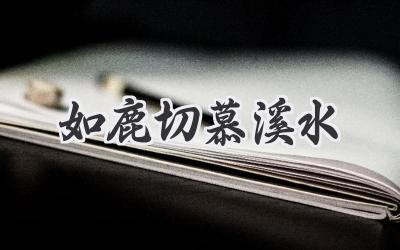 如鹿切慕溪水